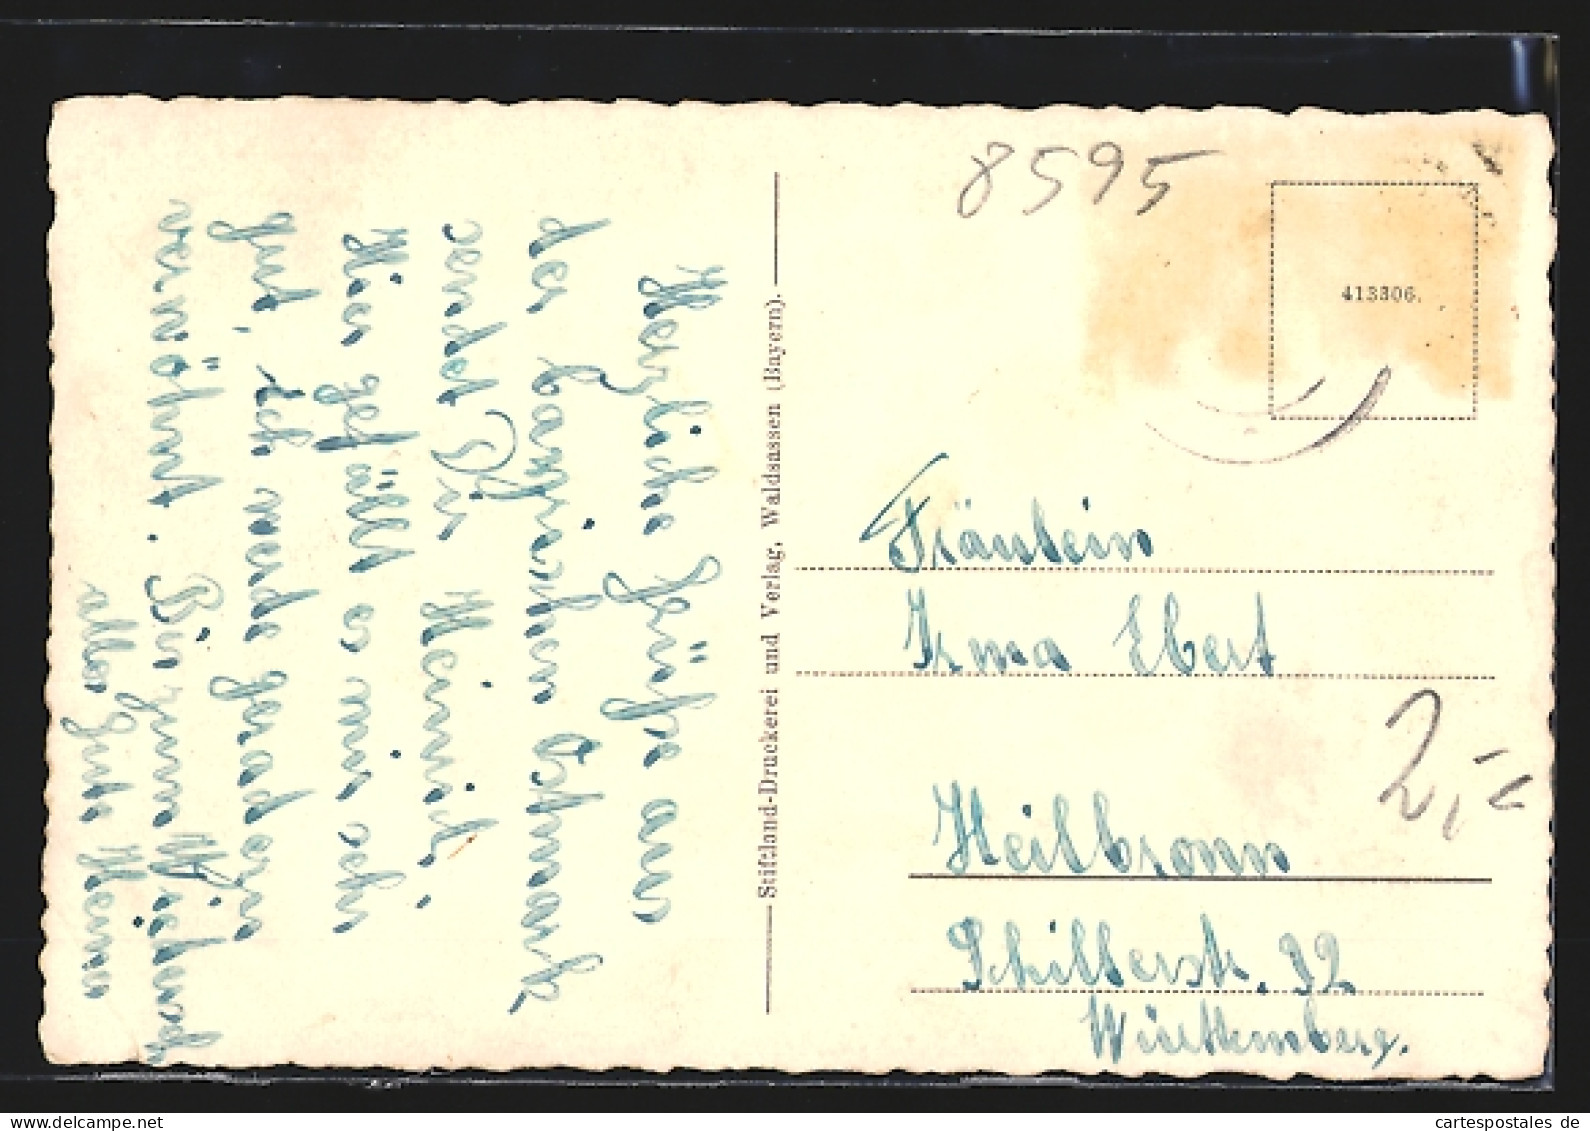 8595
413306.
Herzliche Grüße aus
der bayrischen Ostmark
sendet Dir Heinrich.
Hier gefällt es mir sehr
gut, ich werde geradezu
verwöhnt. Bis zum Wiederseh
alles Gute Heiner
Stiftland-Druckerei und Verlag, Waldsassen (Bayern).
Fräulein
Irma Ebert
Heilbronn
Schillerstr. 92
Württemberg.
cartespostales de